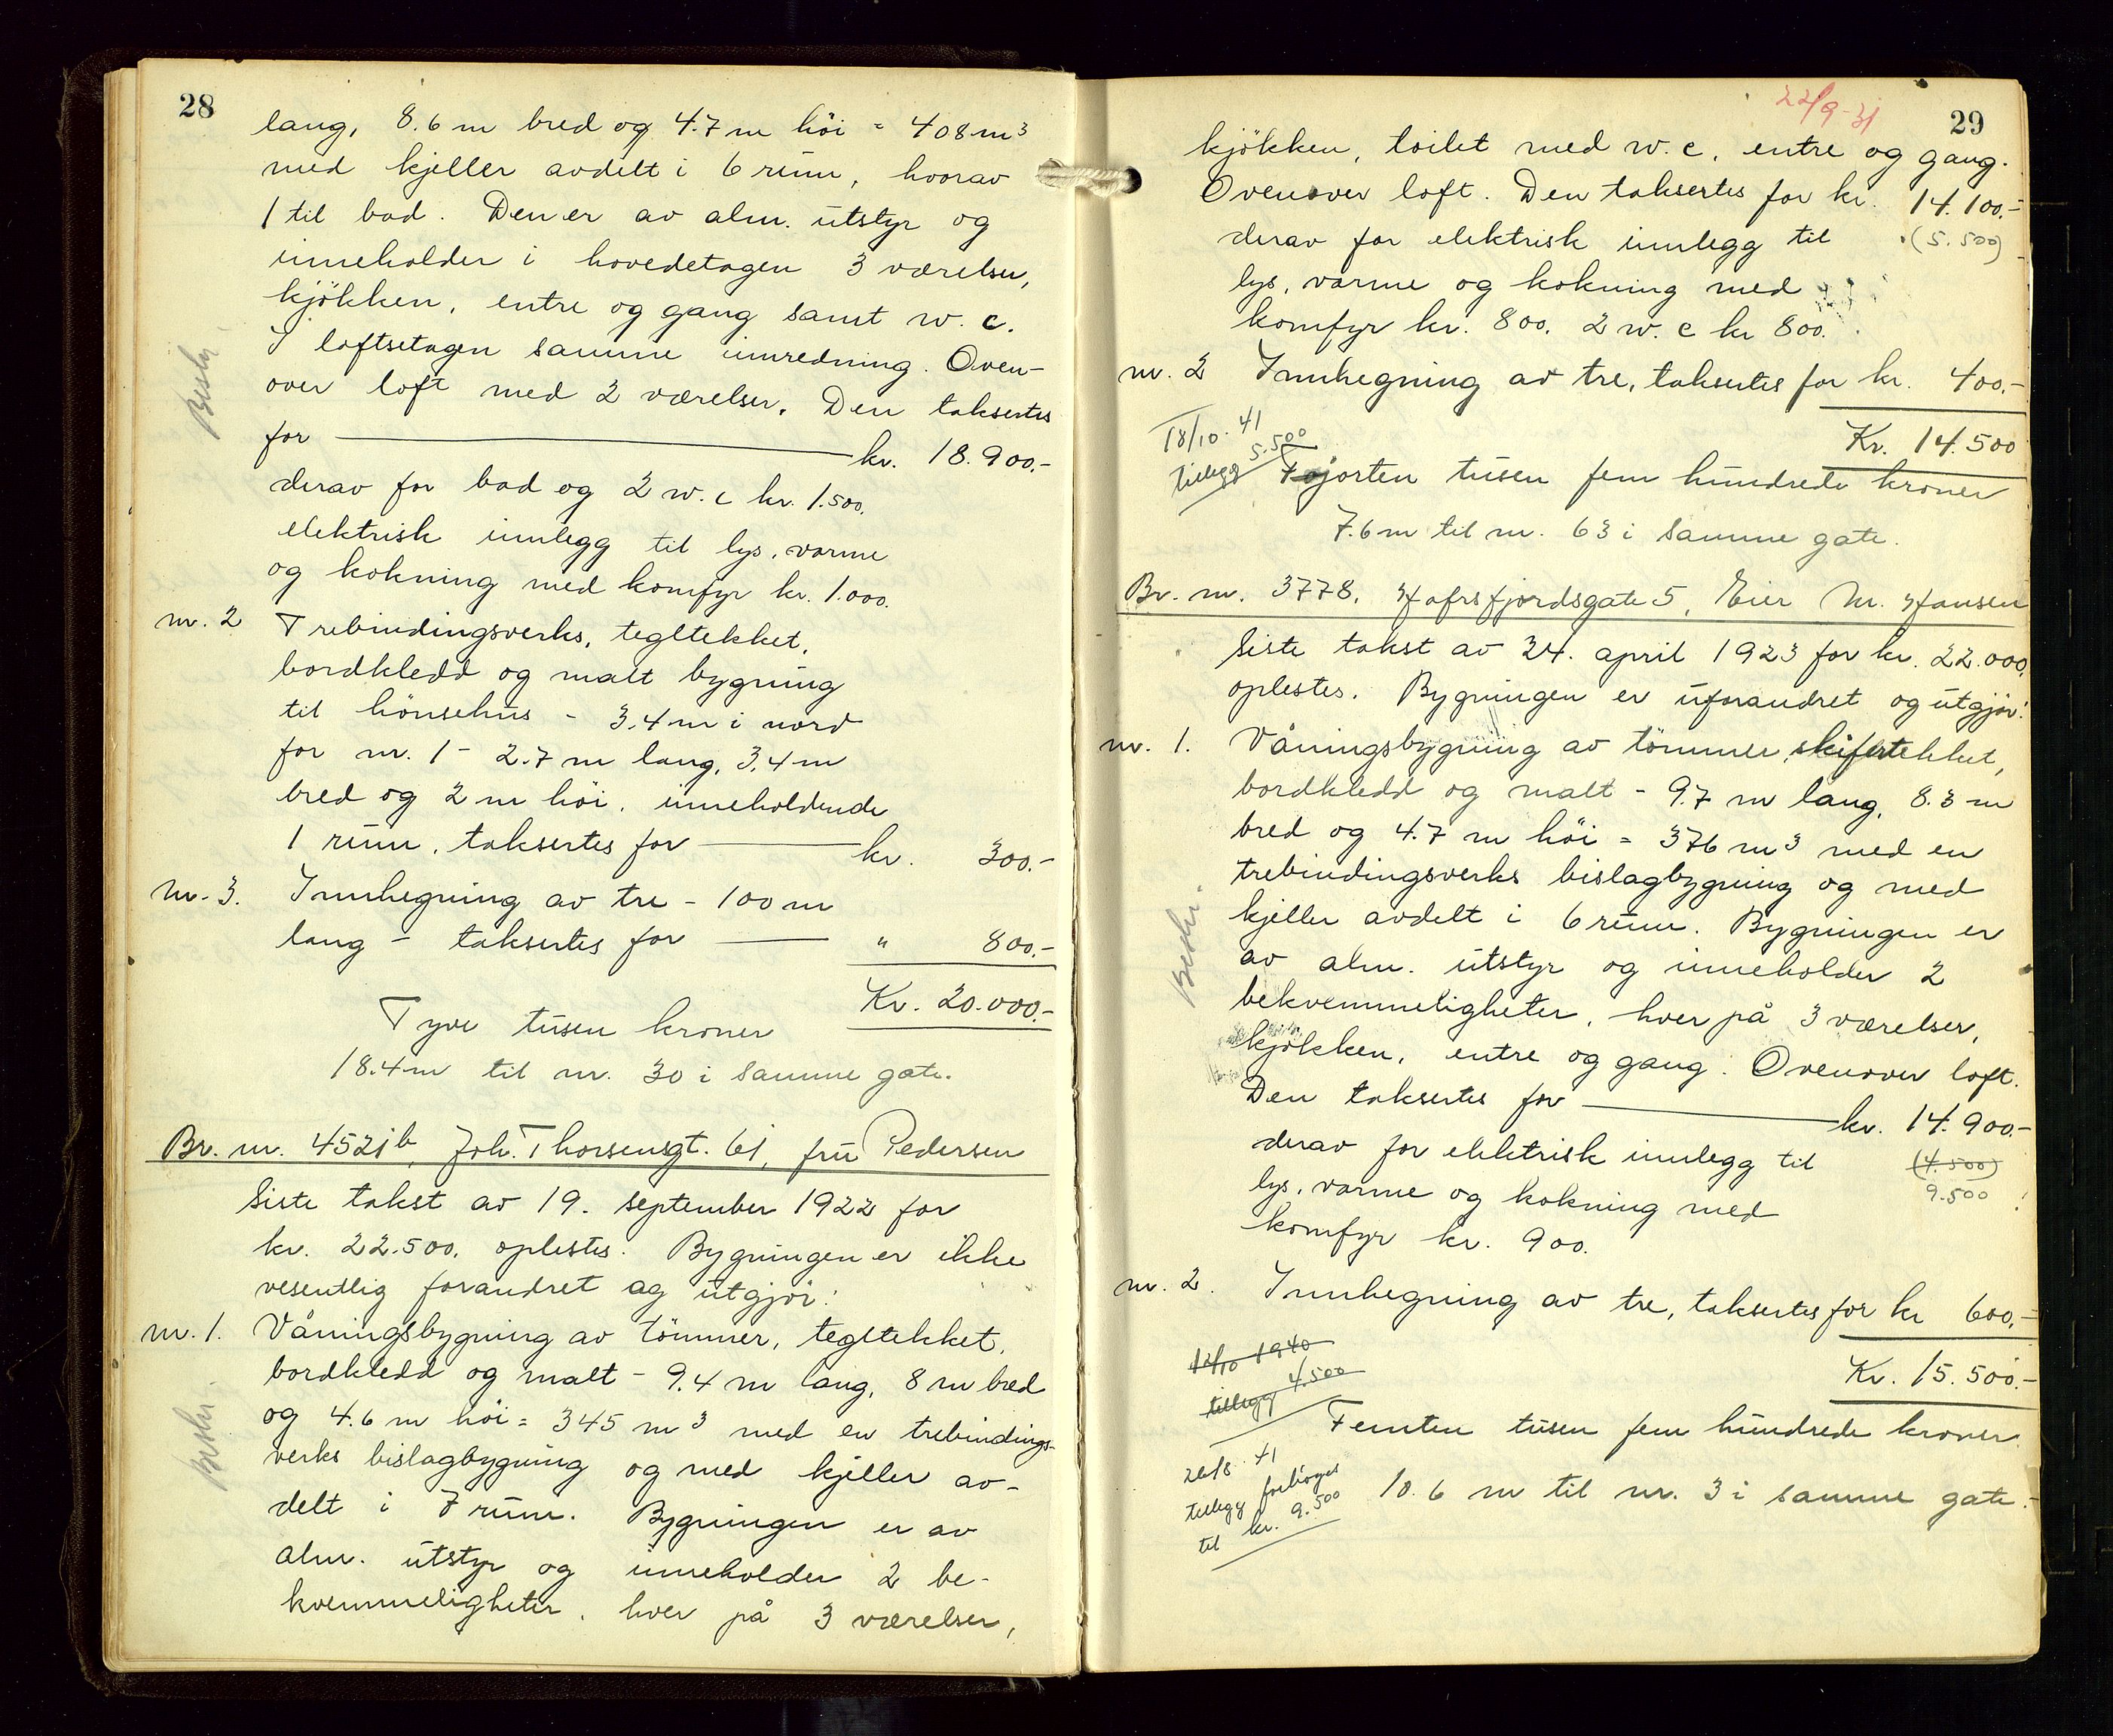 28
lang, 8.6 m bred og 4.7 m höi = 408 m³
med kjeller avdelt i 6 rum, hvorav
1 til bad. Den er av alm. utstyr og
inneholder i hovedetagen 3 værelser,
kjökken, entre og gang samt w. c.
I loftsetagen samme innredning. Oven-
over loft med 2 værelser. Den taksertes
for kr. 18.900.-
derav for bad og 2 w. c kr. 1.500.
elektrisk innlegg til lys, varme
og kokning med komfyr kr. 1.000.
nr. 2 Trebindingsverks, tegltekket,
bordkledd og malt bygning
til hönsehus - 3,4 m i nord
for nr. 1 - 2.7 m lang, 3,4 m
bred og 2 m höi, inneholdende
1 rum, taksertes for kr. 300.-
nr. 3. Innhegning av tre - 100 m
lang - taksertes for " 800.-
Kr. 20.000.-
Tyve tusen kroner
18.4 m til nr. 30 i samme gate.
Br. nr. 4521b, Joh. Thorsensgt. 61, fru Pedersen
Siste takst av 19. september 1922 for
kr. 22.500. oplestes. Bygningen er ikke
vesentlig forandret og utgjör:
nr. 1. Våningsbygning av tömmer, tegltekket,
bordkledd og malt - 9.4 m lang, 8 m bred
og 4.6 m höi = 345 m³ med en trebindings-
verks bislagbygning og med kjeller av-
delt i 7 rum. Bygningen er av
alm. utstyr og inneholder 2 be-
kvemmeligheter, hver på 3 værelser,
22/9-31
29
kjökken, toilet med w. c, entre og gang.
Ovenover loft. Den taksertes for kr. 14.100.-
derav for elektrisk innlegg til (5.500)
lys, varme og kokning med
komfyr kr. 800. 2 w. c kr 800.
nr. 2 Innhegning av tre, taksertes for kr. 400.-
Kr. 14.500
18/10. 41
tillegg 5.500
Fjorten tusen fem hundrede kroner
7.6 m til nr. 63 i samme gate.
Br. nr. 3778, Hafrsfjordsgate 5, Eier M. Hansen
Siste takst av 24. april 1923 for kr. 22.000.
oplestes. Bygningen er uforandret og utgjör:
nr. 1. Våningsbygning av tömmer, skifertekket,
bordkledd og malt - 9.7 m lang, 8.3 m
bred og 4.7 m höi = 376 m³ med en
trebindingsverks bislagbygning og med
kjeller avdelt i 6 rum. Bygningen er
av alm. utstyr og inneholder 2
bekvemmeligheter, hver på 3 værelser,
kjökken, entre og gang. Ovenover loft.
Den taksertes for kr. 14.900.-
derav for elektrisk innlegg til (4.500)
lys, varme og kokning med 9.500
komfyr kr. 900.
nr. 2. Innhegning av tre, taksertes for kr 600.-
12/10 1940
tillegg 4.500
Kr. 15.500.-
Femten tusen fem hundrede kroner.
26/8. 41
tillegg forhöyes
til kr. 9.500
10.6 m til nr. 3 i samme gate.